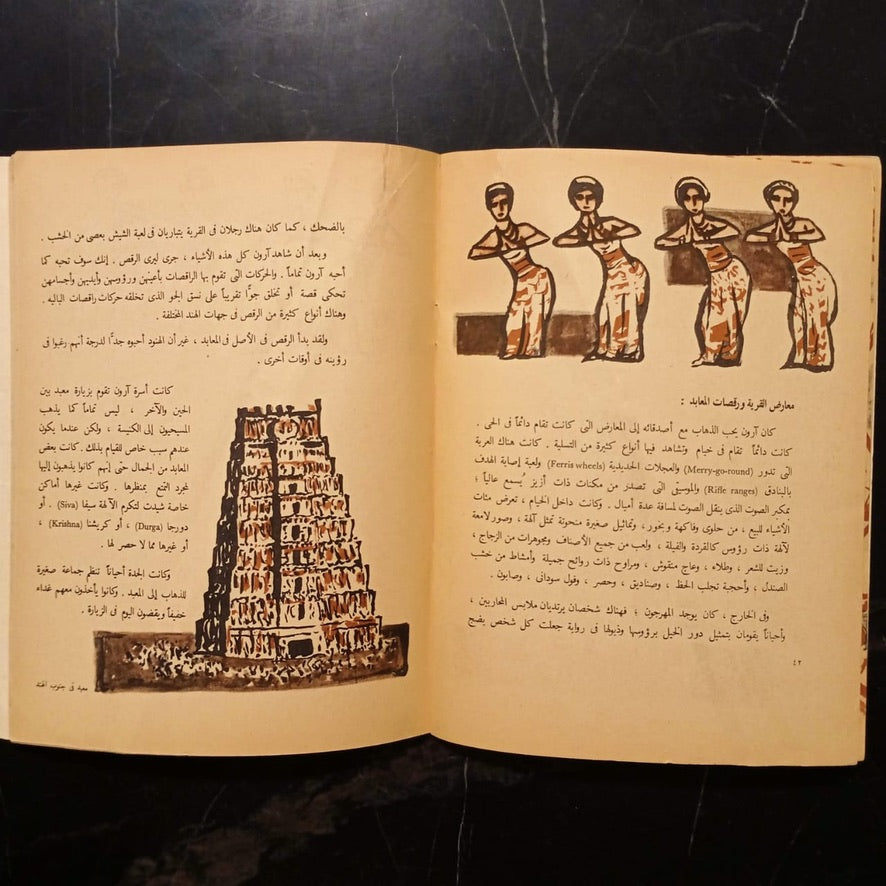 معارض القرية ورقصات المعابد :
كان آرون يحب الذهاب مع أصدقائه إلى المعارض التى كانت تقام دائماً فى الحى .
كانت دائماً تقام فى خيام وتشاهد فيها أنواع كثيرة من التسلية . كانت هناك العربة
التى تدور (Merry-go-round) والعجلات الحديدية (Ferris wheels) ولعبة إصابة الهدف
بالبنادق (Rifle ranges) والموسيقى التى تصدر من مكنات ذات أزيز يُسمع عالياً ؛
بمكبر الصوت الذى ينقل الصوت لمسافة عدة أميال . وكانت داخل الخيام ، تعرض مئات
الأشياء للبيع ، من حلوى وفاكهة وبخور ، وتماثيل صغيرة منحوتة تمثل آلهة ، وصور لامعة
لآلهة ذات رؤوس كالقردة والفيلة ، ولعب من جميع الأصناف ومجوهرات من الزجاج ،
وزيت للشعر ، وطلاء ، وعاج منقوش ، ومراوح ذات روائح جميلة وأمشاط من خشب
الصندل ، وأحجبة تجلب الحظ ، وصناديق ، وحصر ، وفول سودانى ، وصابون .
وفى الخارج ، كان يوجد المهرجون ؛ فهناك شخصان يرتديان ملابس المحاربين ،
وأحياناً يقومان بتمثيل دور الخيل برؤوسها وذيولها فى رواية جعلت كل شخص يضج
٤٢
بالضحك ، كما كان هناك رجلان فى القرية يتباريان فى لعبة الشيش بعصى من الخشب .
وبعد أن شاهد آرون كل هذه الأشياء ، جرى ليرى الرقص . إنك سوف تحبه كما
أحبه آرون تماماً . والحركات التى تقوم بها الراقصات بأعينهن ورؤوسهن وأيديهن وأجسامهن
تحكى قصة أو تخلق جوًّا تقريباً على نسق الجو الذى تخلقه حركات راقصات الباليه .
وهناك أنواع كثيرة من الرقص فى جهات الهند المختلفة .
ولقد بدأ الرقص فى الأصل فى المعابد ، غير أن الهنود أحبوه جدًّا لدرجة أنهم رغبوا فى
رؤيته فى أوقات أخرى .
كانت أسرة آرون تقوم بزيارة معبد بين
الحين والآخر ، ليس تماماً كما يذهب
المسيحيون إلى الكنيسة ، ولكن عندما يكون
عندهم سبب خاص للقيام بذلك . كانت بعض
المعابد من الجمال حتى إنهم كانوا يذهبون إليها
لمجرد التمتع بمنظرها . وكانت غيرها أماكن
خاصة شيدت لتكرم الآلهة سيفا (Siva) . أو
دورجا (Durga) ، أو كريشنا (Krishna) ،
أو غيرها مما لا حصر لها .
وكانت الجدة أحياناً تنظم جماعة صغيرة
للذهاب إلى المعبد . وكانوا يأخذون معهم غداء
خفيفاً ويقضون اليوم فى الزيارة .
معبد فى جنوب الهند